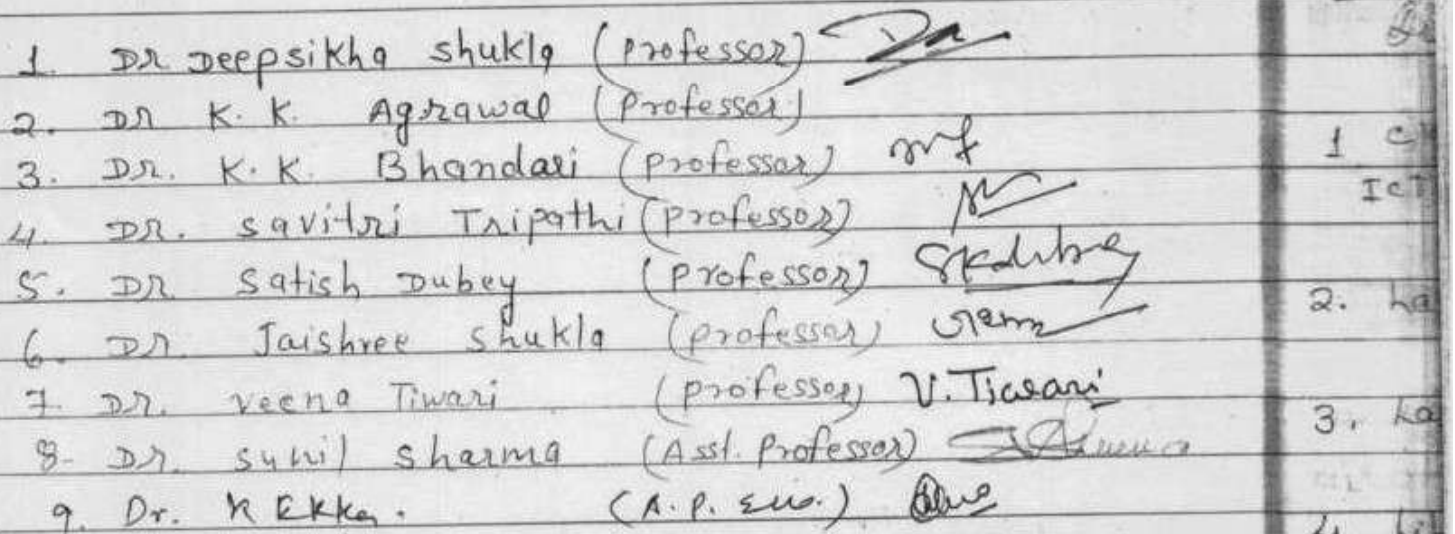 1. DR Deepsikha Shukla (Professor)
2. DR K. K. Agrawal (Professor)
3. DR. K. K. Bhandari (Professor)
4. DR. Savitri Tripathi (Professor)
5. DR Satish Dubey (Professor)
6. DR. Jaishree Shukla (Professor)
7. DR. Veena Tiwari (Professor) V. Tiwari
8- DR. Sunil Sharma (Asst. Professor)
9. Dr. K Ekka. (A.P.
1
2.
3.